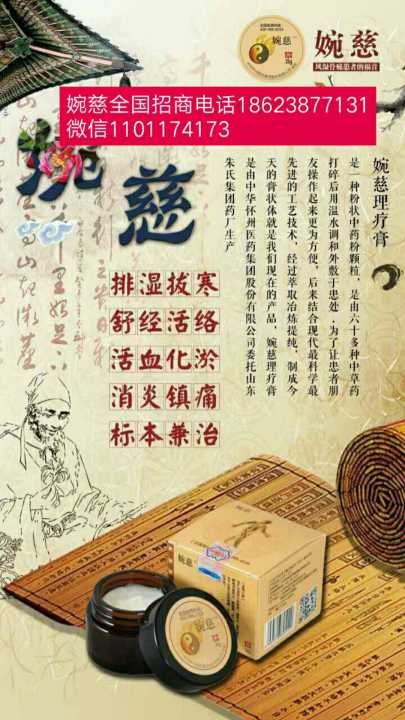 婉慈
风湿骨痛患者的福音
婉慈
婉慈全国招商电话18623877131
微信1101174173
婉慈
婉慈理疗膏
是一种粉状中药粉颗粒，是由六十多种中草药
打碎后用温水调和外敷于患处，为了让患者朋
友操作起来更为方便，后来结合现代最科学最
先进的工艺技术，经过萃取冶炼提纯，制成今
天的膏状体就是我们现在的产品，婉慈理疗膏
是由中华怀州医药集团股份有限公司委托山东
朱氏集团药厂生产
排湿拔寒
舒经活络
活血化淤
消炎镇痛
标本兼治
婉慈
婉慈